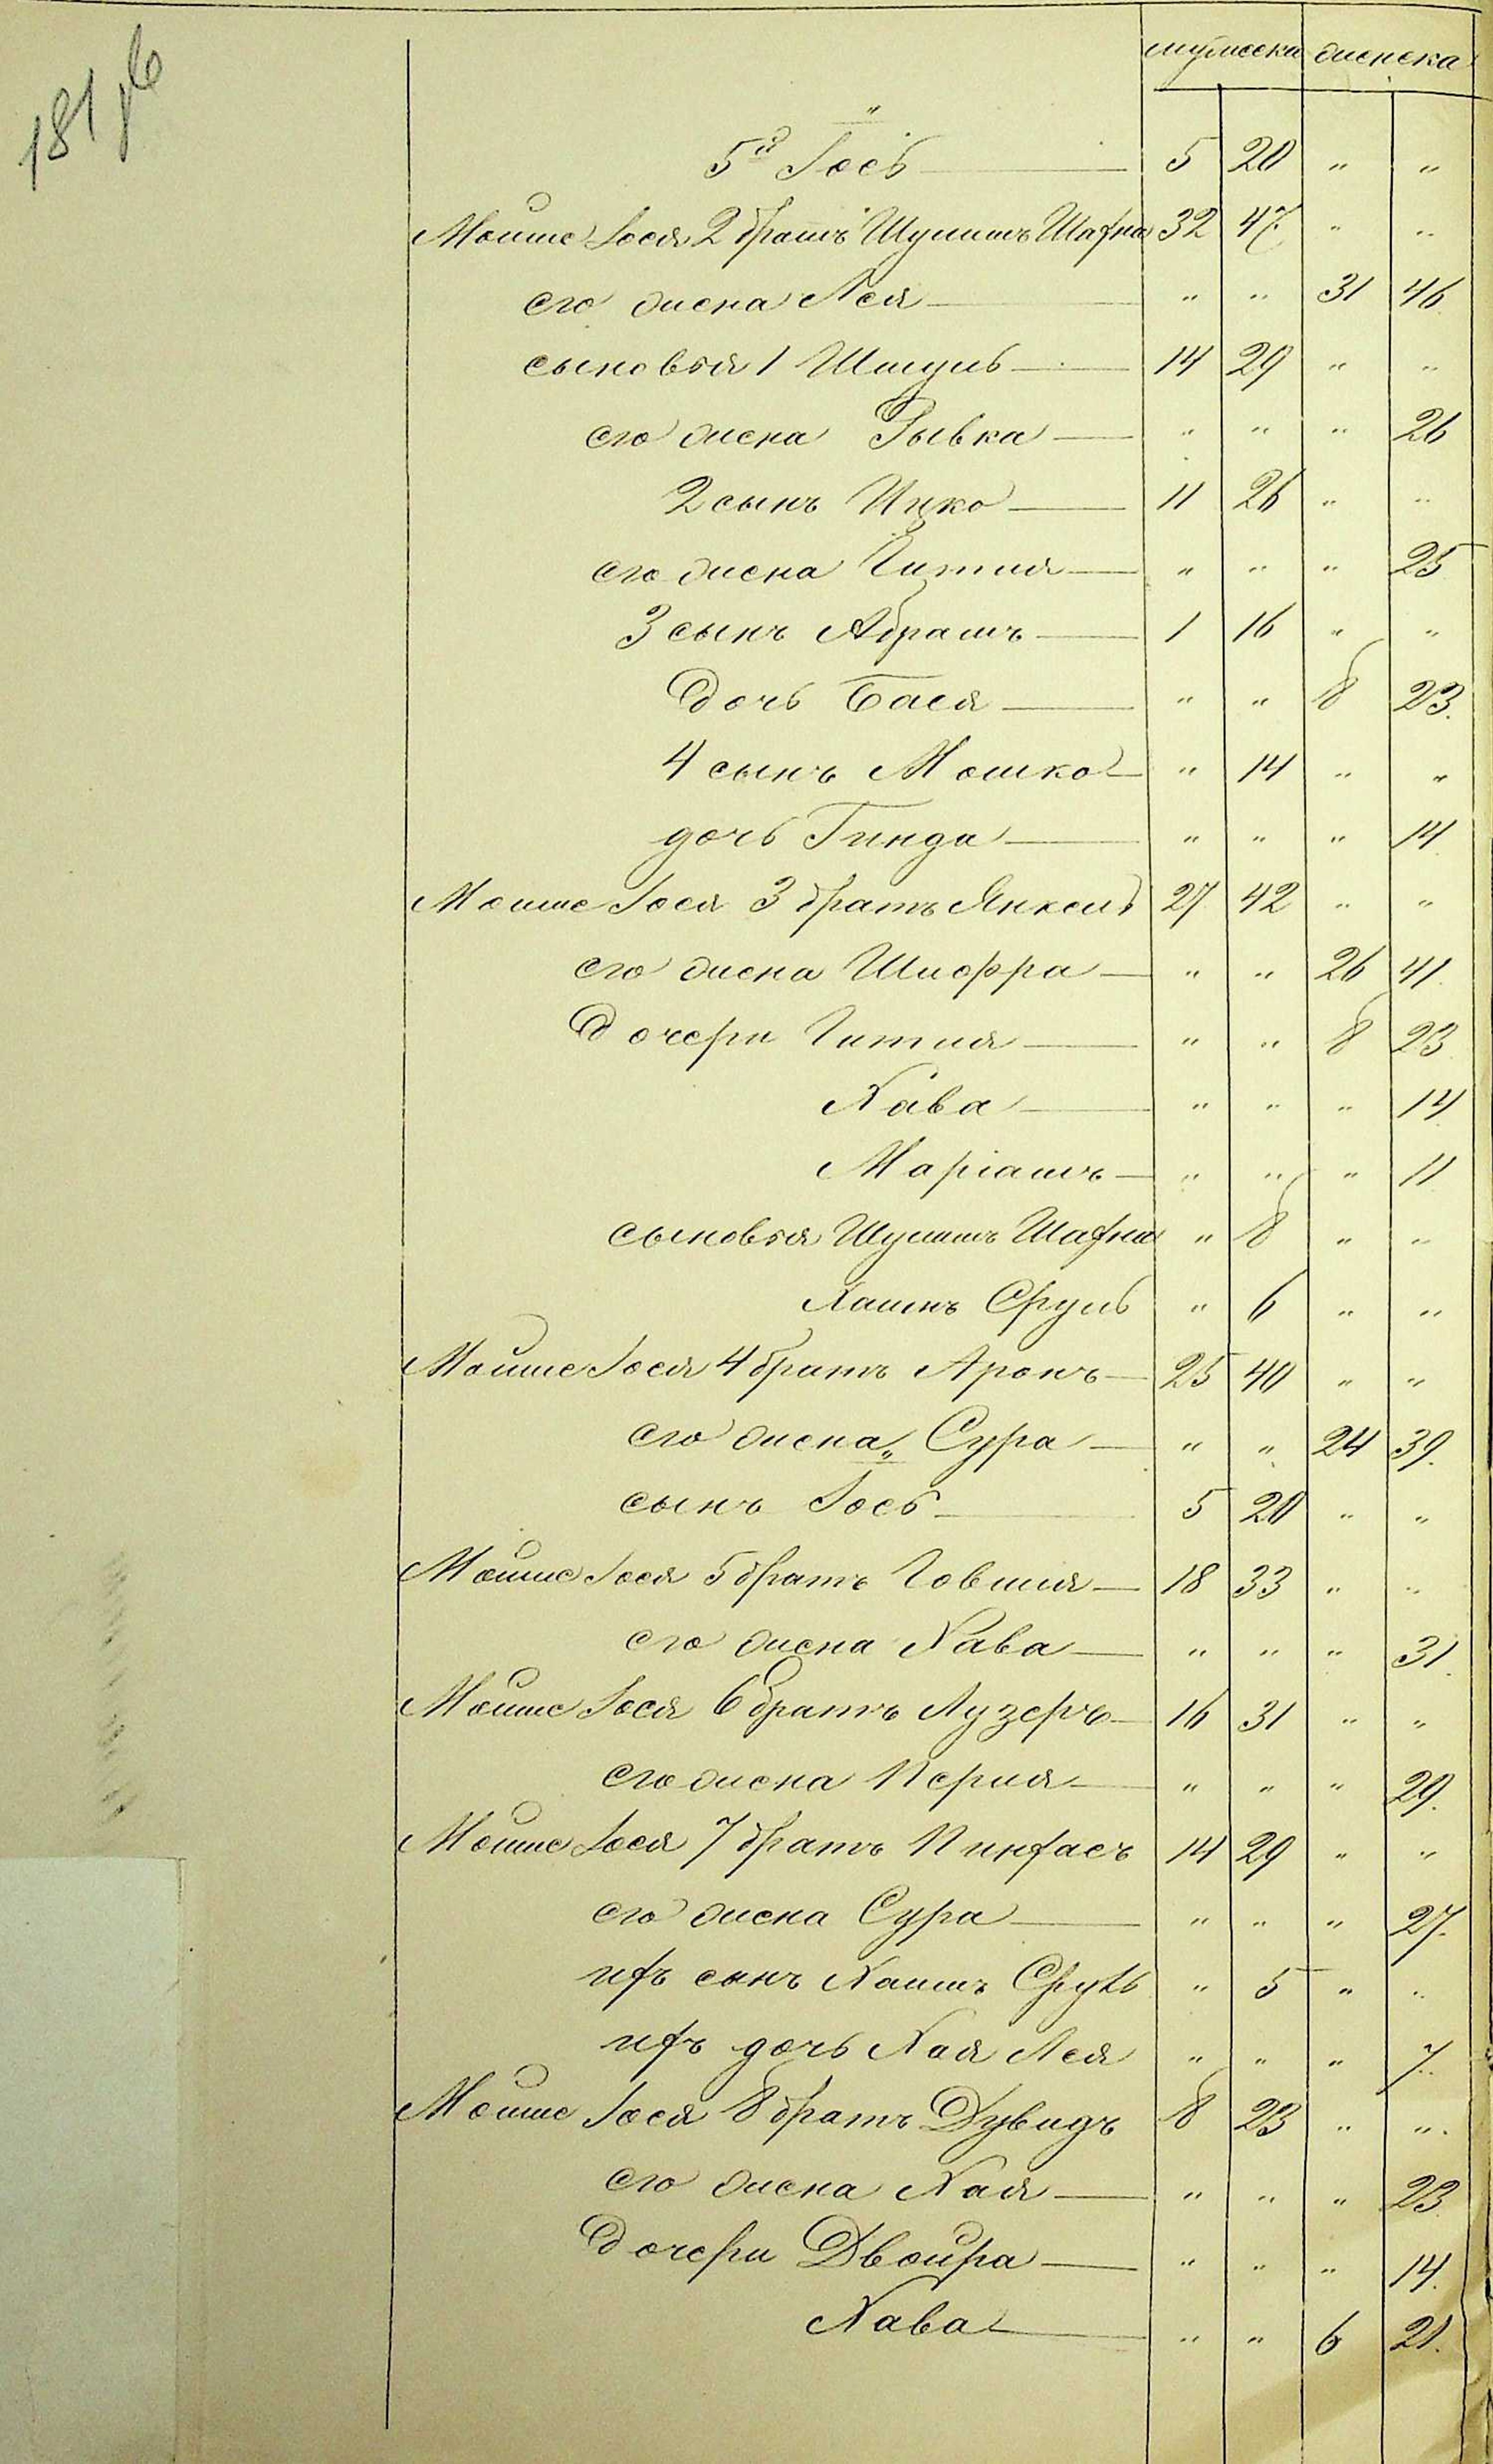 181
мужеска женска
5й Іось 5 20 " "
Мойше Іося 2 братъ Шулимъ Шахна 32 47 " "
его жена Лея " " 31 46
сыновья 1 Шмуль 14 29 " "
его жена Рывка " " " 26
2 сынъ Ицко 11 26 " "
его жена Гитля " " " 25
3 сынъ Абрамъ 1 16 " "
Дочь Бася " " 8 23.
4 сынъ Мошко " 14 " "
дочь Гинда " " " 14
Мойше Іося 3 братъ Янкель 27 42 " "
его жена Шифра " " 26 41
Дочери Гитля " " 8 23
Хава " " " 14
Маріамъ " " " 11
сыновья Шулимъ Шахна " 8 " "
Хаимъ Сруль " 6 " "
Мойше Іося 4 братъ Аронъ 25 40 " "
его жена Сура " " 24 39.
сынъ Іось 5 20 " "
Мойше Іося 5 братъ Говшия 18 33 " "
его жена Хава " " " 31.
Мойше Іося 6 братъ Лузеръ 16 31 " "
его жена Перля " " " 29.
Мойше Іося 7 братъ Пинхасъ 14 29 " "
его жена Сура " " " 27.
ихъ сынъ Хаимъ Сруль " 5 " "
ихъ дочь Хая Лея " " " 7.
Мойше Іося 8 братъ Дувидъ 8 23 " "
его жена Хая " " " 23
Дочери Двойра " " " 14.
Хава " " 6 21.